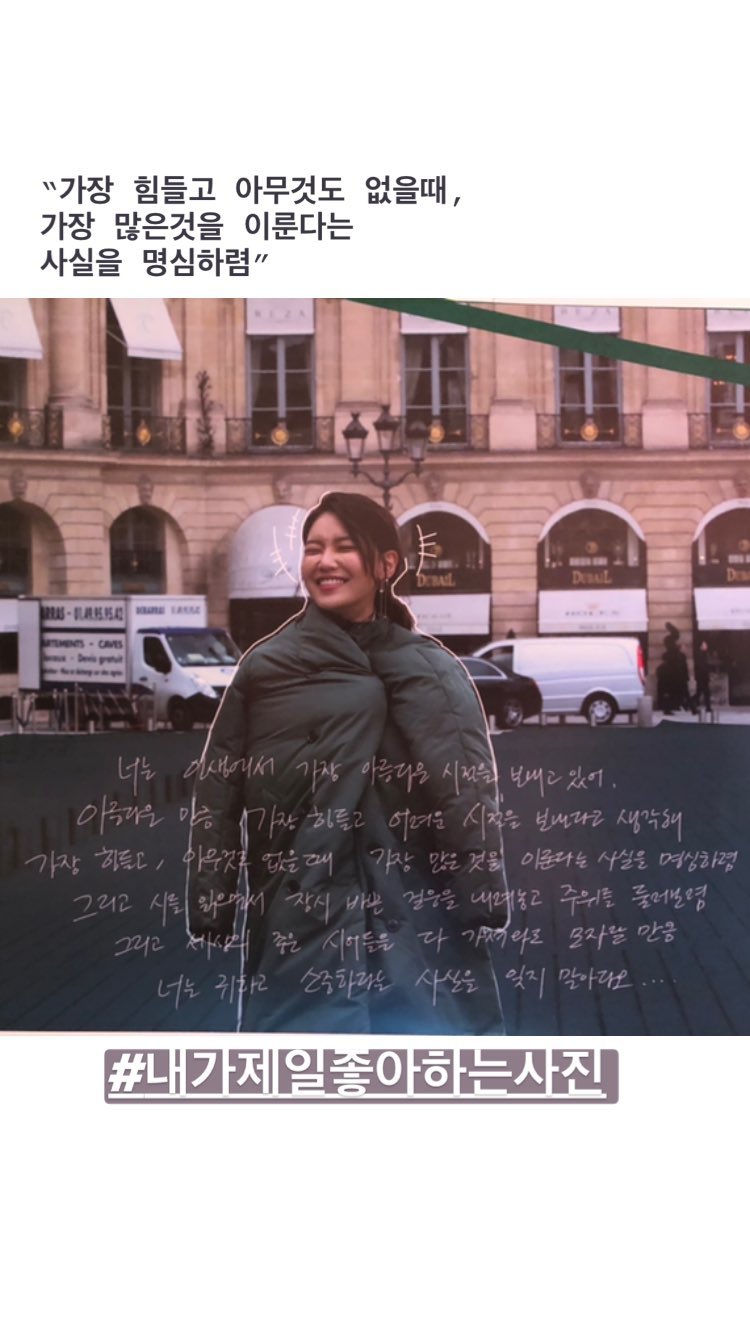 “가장 힘들고 아무것도 없을때,
가장 많은것을 이룬다는
사실을 명심하렴”
REZA
DUBAIL
DUBAIL
DUBAIL
ARRAS - 01.49.95.95.42
DÉBARRAS
ARTEMENTS - CAVES
Devis gratuit
너는 인생에서 가장 아름다운 시절을 보내고 있어.
아름다운 만큼 가장 힘들고 어려운 시절을 보낸다고 생각해
가장 힘들고, 아무것도 없을때 가장 많은것을 이룬다는 사실을 명심하렴
그리고 시를 읽으면서 잠시 바쁜 걸음을 내려놓고 주위를 둘러보렴
그리고 세상의 좋은 시어들을 다 가져와도 모자랄 만큼
너는 귀하고 소중하다는 사실을 잊지 말아다오....
#내가제일좋아하는사진